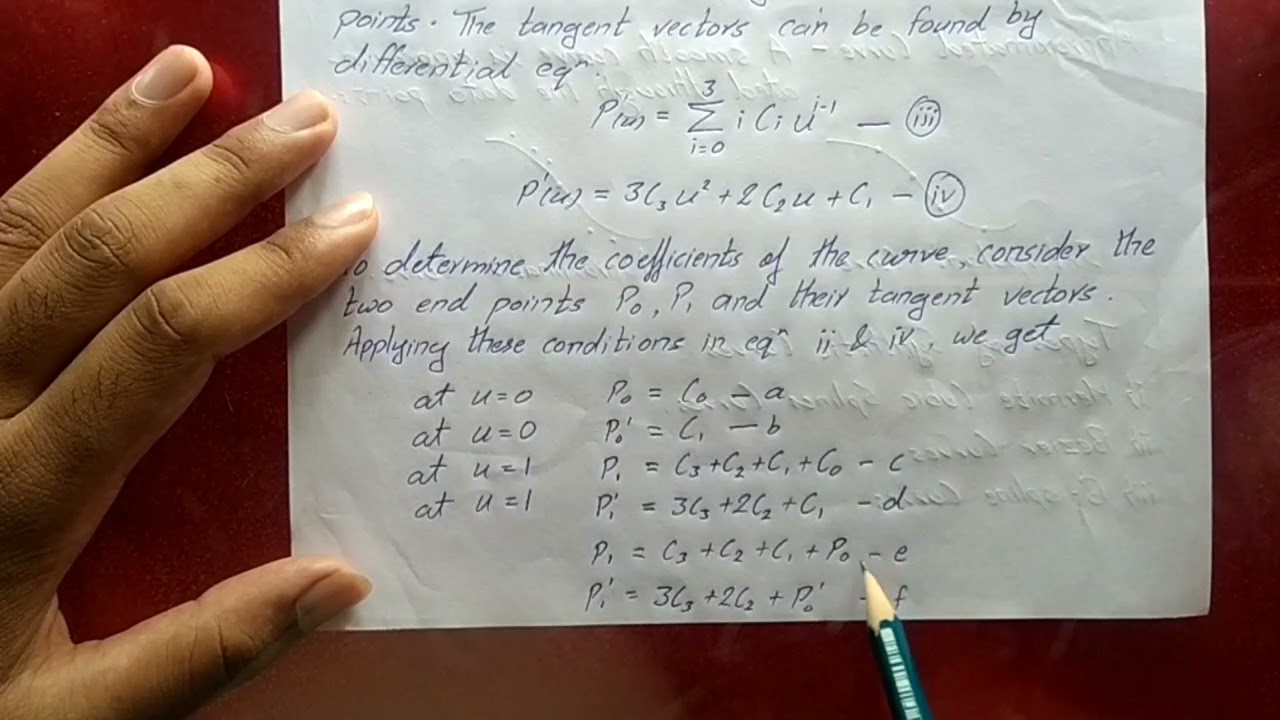 points. The tangent vectors can be found by
differential eqⁿ.
P'(u) = Σ³ᵢ₌₀ i Cᵢ uⁱ⁻¹ — (iii)
P'(u) = 3C₃u² + 2C₂u + C₁ — (iv)
o determine the coefficients of the curve, consider the
two end points P₀, P₁ and their tangent vectors.
Applying these conditions in eqⁿ ii & iv, we get
at u=0 P₀ = C₀ — a
at u=0 P₀' = C₁ — b
at u=1 P₁ = C₃+C₂+C₁+C₀ — c
at u=1 P₁' = 3C₃+2C₂+C₁ — d
P₁ = C₃+C₂+C₁+P₀ — e
P₁' = 3C₃+2C₂+P₀' - f